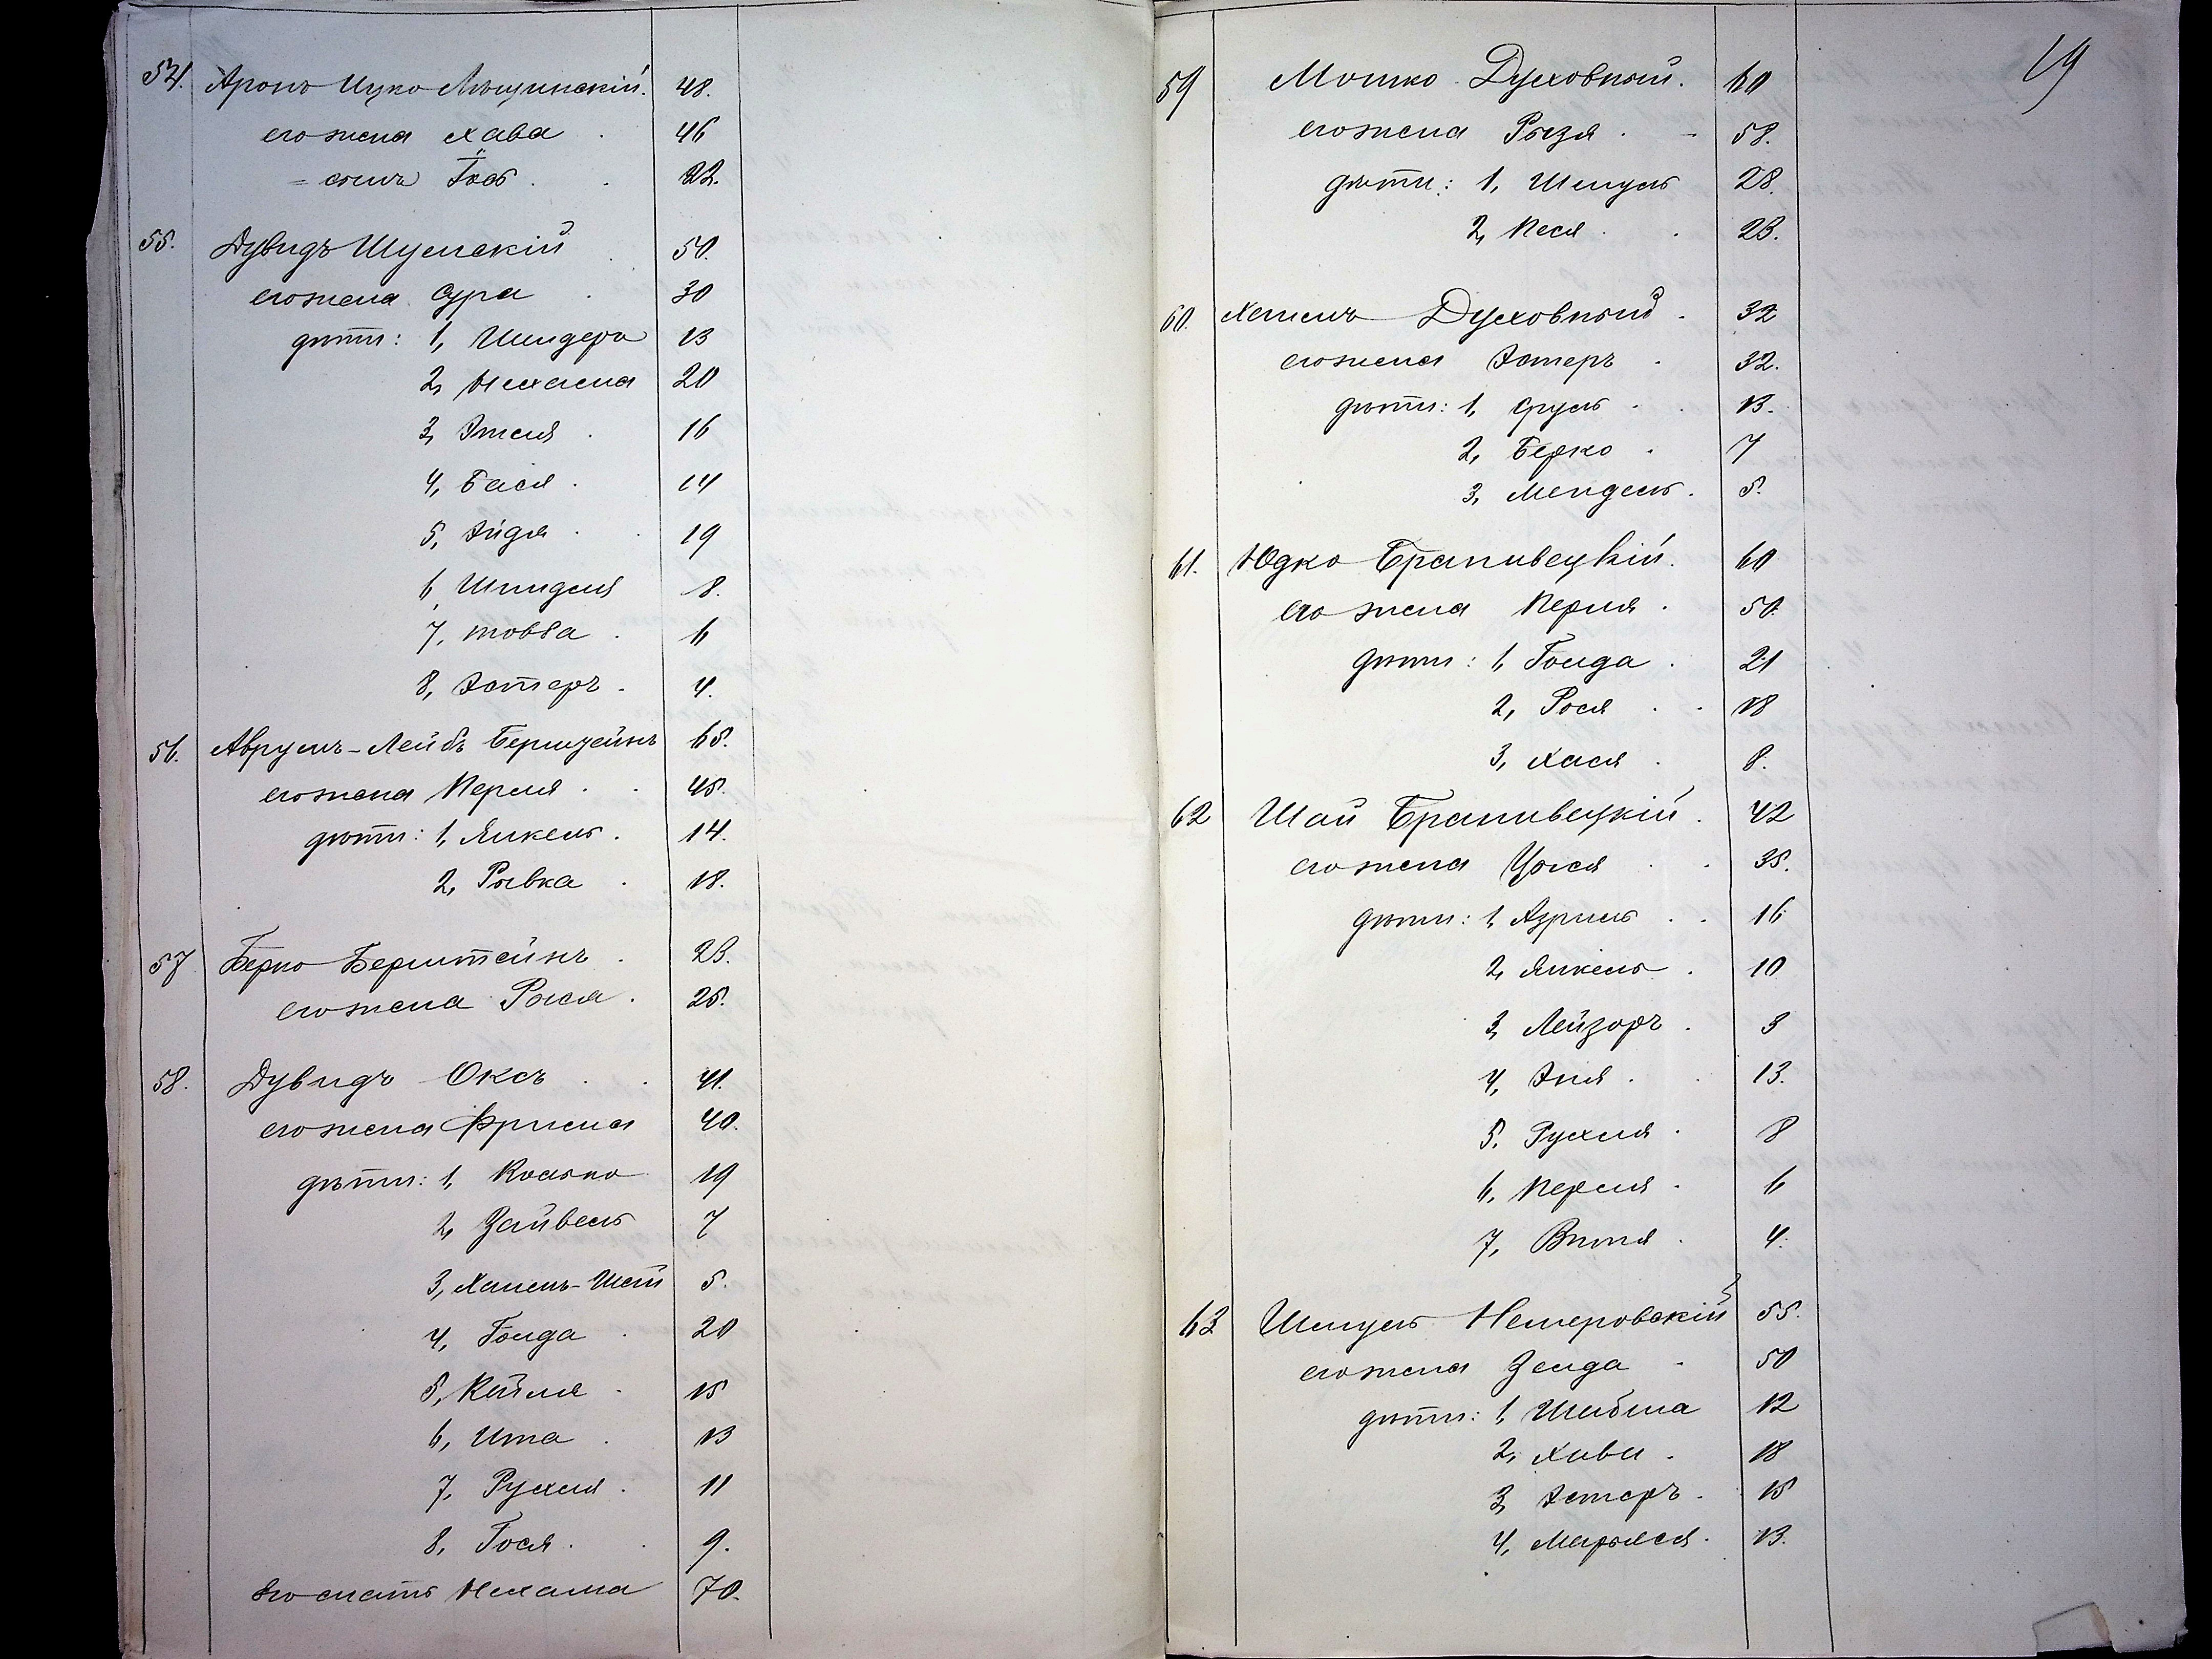 54. Аронъ Ицко Лещинскій. 48.
его жена Хава 46
= сынъ Іосъ 22.
55. Дувидъ Шумскій 50.
его жена Сура 30
дѣти: 1, Шендеръ 13
2, Нехама 20
3, Этля 16
4, Бася 14
5, Эйдя 19
6, Шпидля 8.
7, Товба 6
8, Эстеръ 4.
56. Аврумъ-Лейбъ Берштейнъ 65.
его жена Перля 45.
дѣти: 1, Янкель 14.
2, Рывка 18.
57 Берко Берштейнъ 23.
его жена Рыся 25.
58. Дувидъ Оксъ 41.
его жена Фрима 40.
дѣти: 1, 19
2, Зайвель 7
3, 5.
4, Голда 20
5, Кейля 15
6, Ита 13
7, Рухля 11
8, Гося 9.
Его мать Нехама 70.
19
59 Мошко Духовный. 60
его жена Рызя 58.
дѣти: 1, Шмуль 28.
2, Песя 23.
60. Хаимъ Духовный 32
его жена Эстеръ 32.
дѣти: 1, Сруль 13.
2, Берко 7
3, Мендель 5.
61. Юдко Браживецкій. 60
его жена Перля 50.
дѣти: 1, Голда 21
2, Рося 18
3, Хася 8.
62 Шай Браживецкій. 42
его жена Цыся 35.
дѣти: 1, Азриль 16
2, Янкель 10
3, Лейзоръ 3
4, Эня 13.
5. Рухля 8
6, Перля 6
7, Витя 4.
63 Шмуль Немеровскій 55.
его жена Зелда 50
дѣти: 1, 12
2, 18
3, Эстеръ 15
4, Марьяся 13.